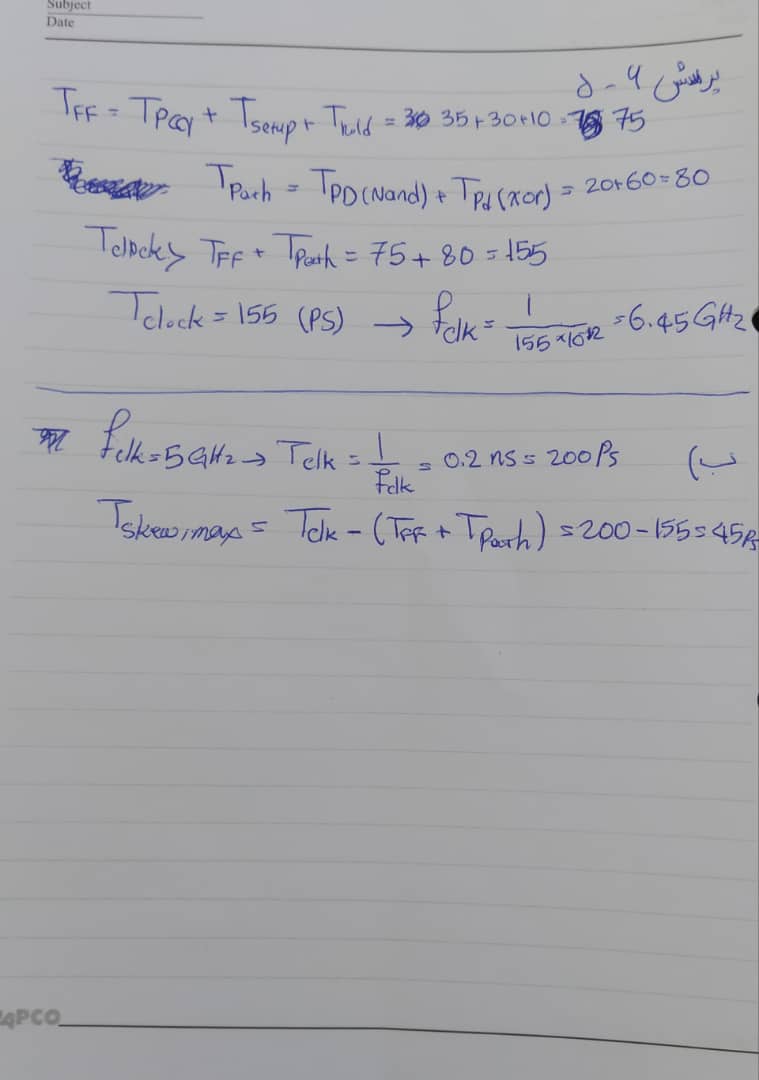 Subject
Date
پرسش ۴ - د
TFF = TPCQ + Tsetup + Thold = 35+30+10 = 75
TPath = TPD(Nand) + TPd(xor) = 20+60=80
Tclock > TFF + TPath = 75 + 80 = 155
Tclock = 155 (PS) → fclk = 1/155×10^-12 = 6.45 GHz
fclk = 5 GHz → Tclk = 1/fclk = 0.2 ns = 200 Ps (ب
Tskew,max = Tclk - (TFF + TPath) = 200 - 155 = 45Ps
APCO